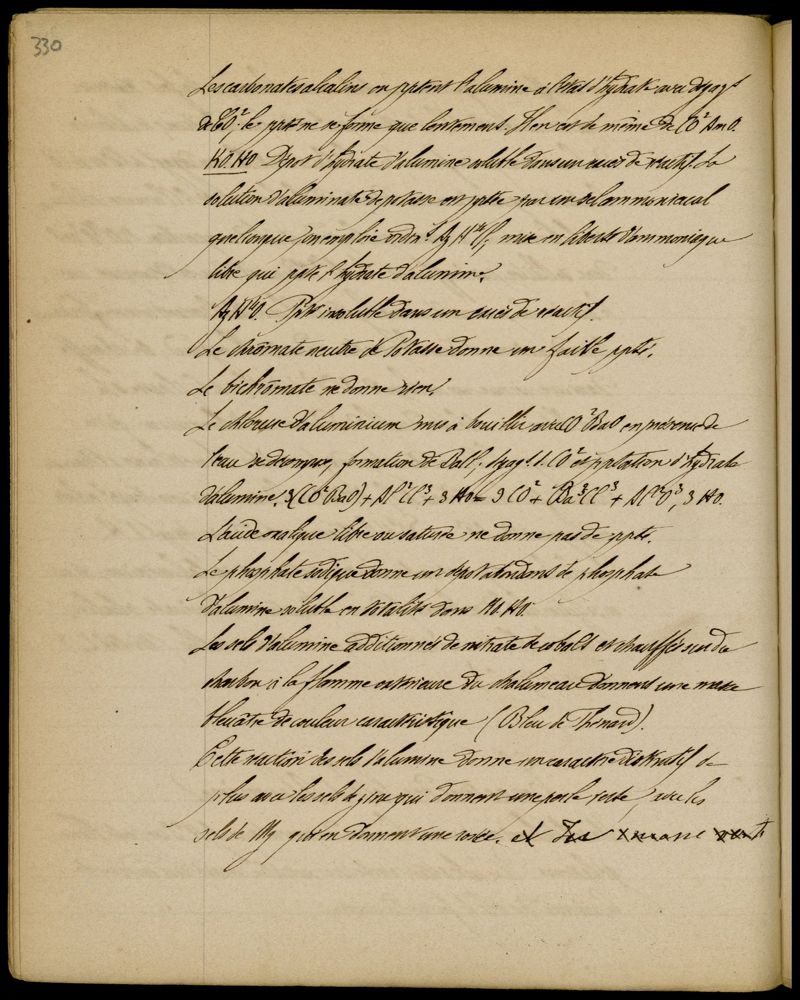 330
Les carbonates alcalins en pptent l'alumine à l'état d'hydrate avec dégagt
de CO². le ppté ne se forme que lentement. Il en est de même de CO² AmO.
KO.HO Dépot d'hydrate d'alumine soluble dans un excès de réactif. La
solution d'aluminate de potasse est pptée par un sel ammoniacal
quelconque, on emploie ordint Az H⁴ Cl, mise en liberté d'ammoniaque
libre qui ppte l'hydrate d'alumine.
Az H⁴O. Ppté insoluble dans un excès de réactif.
Le chrômate neutre de Potasse donne un faible ppté.
Le bichrômate ne donne rien.
Le chlorure d'aluminium mis à bouillir avec CO² BaO en présence de
l'eau se décompose, formation de BaCl, dégagt d. CO² et pptation d'hydrate
d'alumine. 3(CO² BaO) + Al² Cl³ + 3 HO = 3 CO² + Ba³Cl³ + Al²O³, 3 HO.
L'acide oxalique libre ou saturé ne donne pas de ppté.
Le phosphate sodique donne un dépot abondant de phosphate
d'alumine soluble en totalité dans KO.HO.
Les sels d'alumine additionnés de nitrate de cobalt et chauffés sur du
charbon à la flamme extérieure du chalumeau donnent une masse
bleuâtre de couleur caractéristique (Bleu de Thénard).
Cette réaction des sels d'alumine donne un caractère distinctif de
plus avec les sels de zinc qui donnent une perle verte, avec les
sels de Mg qui en donnent une rosée.